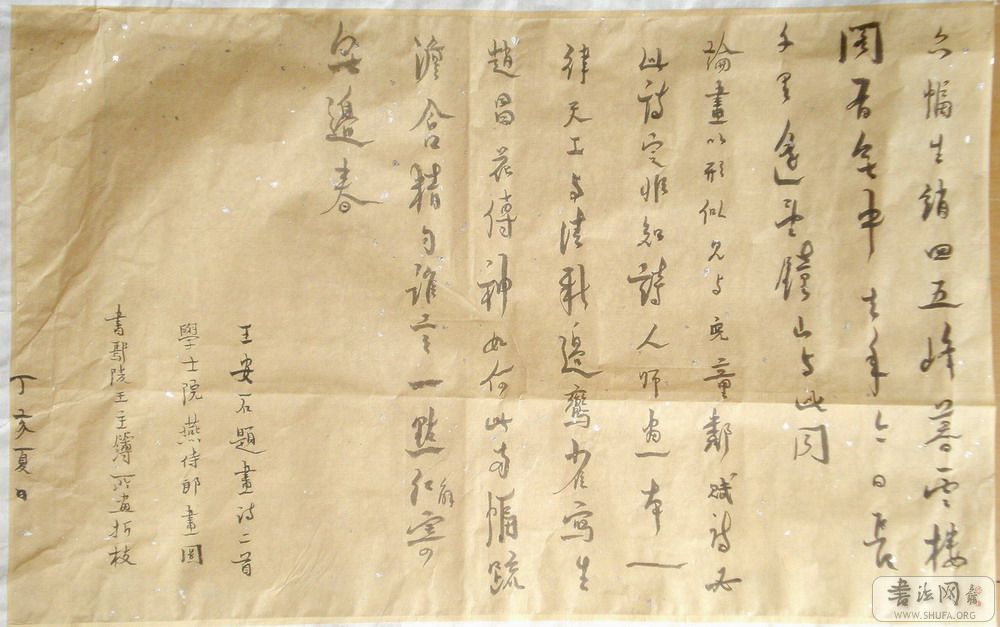 六幅生綃四五峰暮雲樓
閣有無中去年今日長
千里遙望鍾山與此同
論畫以形似見與兒童鄰賦詩必
此詩定非知詩人師畫本一
律天工與清新邊鸞雀寫生
趙昌花傳神如何此兩幅疏
澹含精勻誰言一點紅解寄
無邊春
王安石題畫詩二首
學士院燕侍郎畫圖
書鄢陵王主簿所畫折枝
丁亥夏日
书法网
WWW.SHUFA.ORG